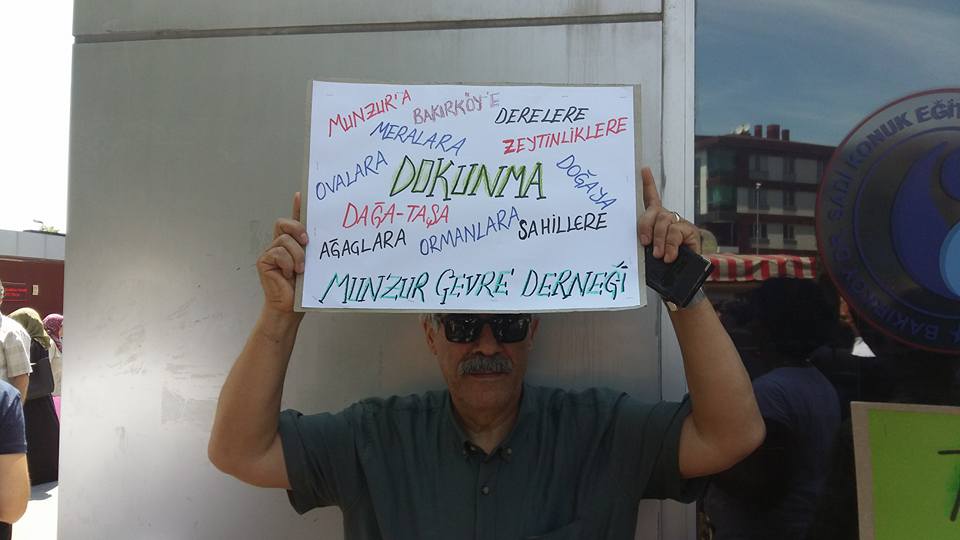 MUNZUR'A BAKIRKÖY'E DERELERE
MERALARA ZEYTİNLİKLERE
OVALARA DOKUNMA DOĞAYA
DAĞA-TAŞA
AĞAGLARA ORMANLARA SAHİLLERE
MUNZUR ÇEVRE DERNEĞİ
SADİ KONUK EĞİT
BAKIRKÖY